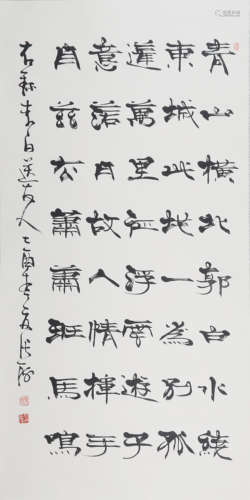 青山橫北郭白水繞
東城此地一為別孤
蓬萬里征浮雲遊子
意落日故人情揮手
自茲去蕭蕭班馬鳴
右錄李白送友人乙酉年夏